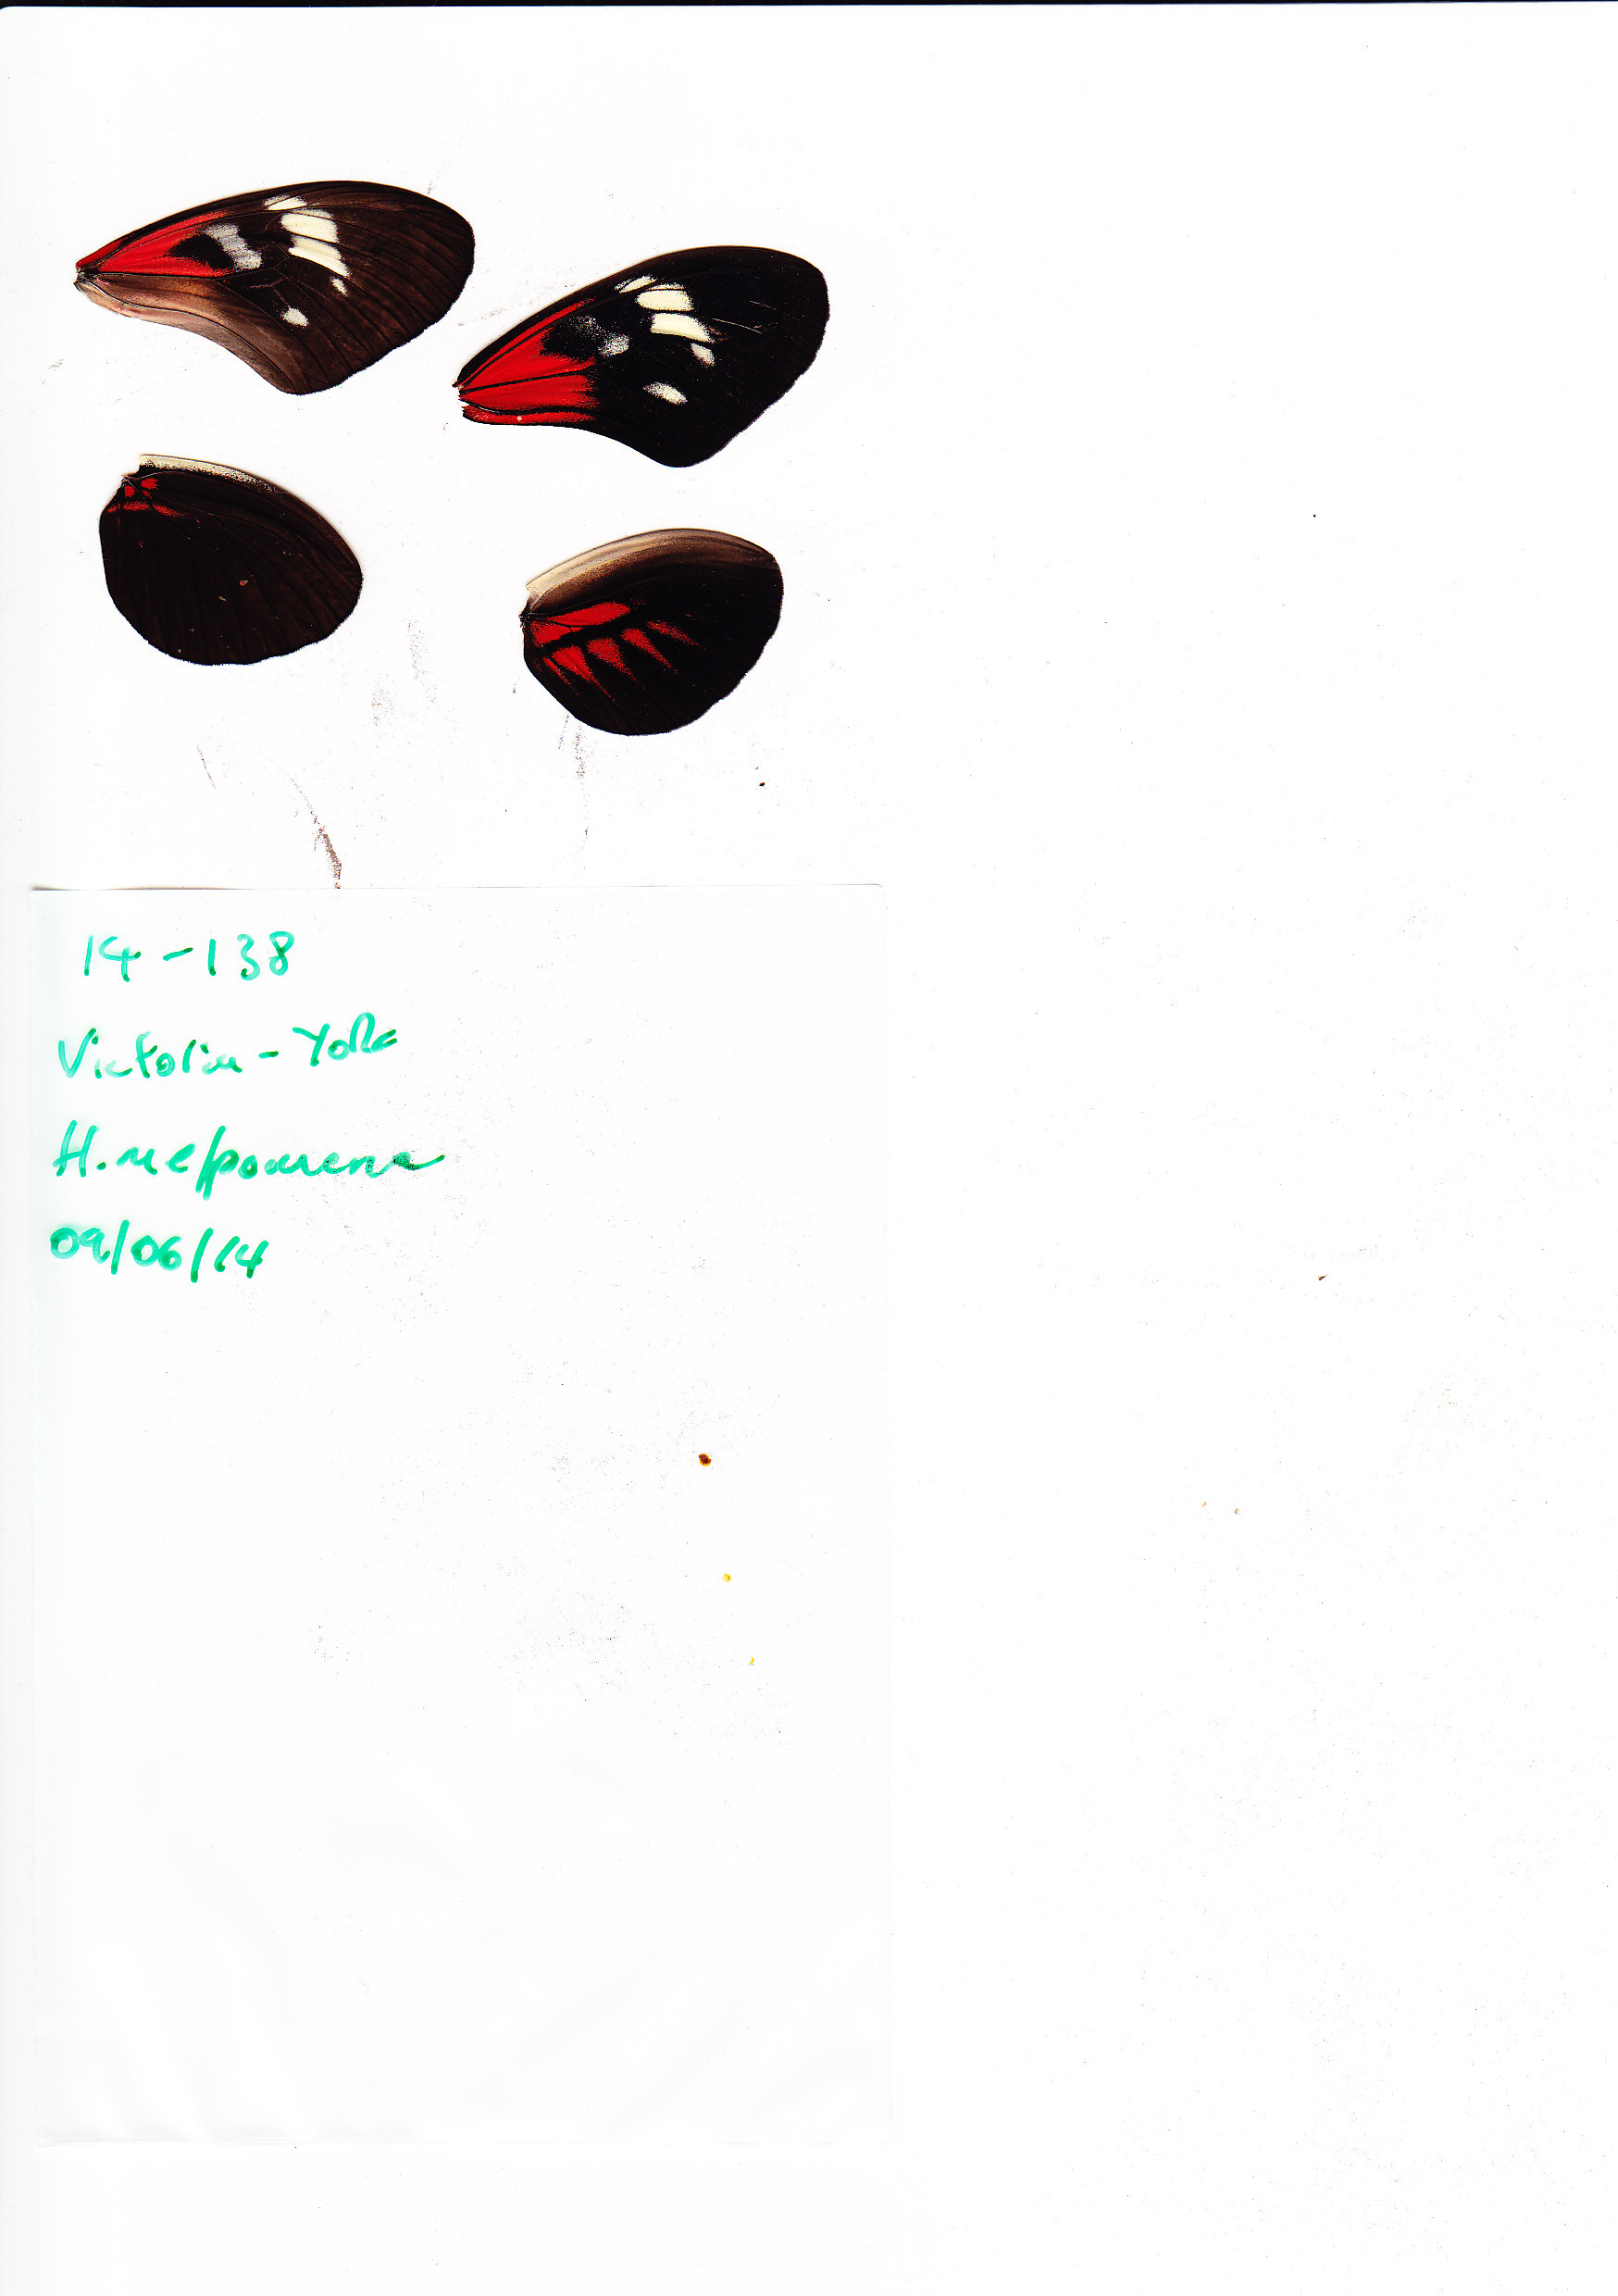 14-138
Victoria - York
H. melpomene
09/06/14